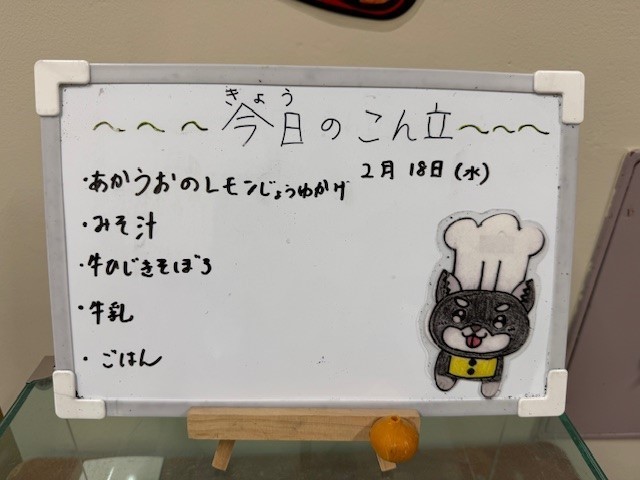 きょう
～～～今日のこん立～～～
2月 18日(水)
・あかうおのレモンじょうゆかけ
・みそ汁
・牛ひじきそぼろ
・牛乳
・ごはん